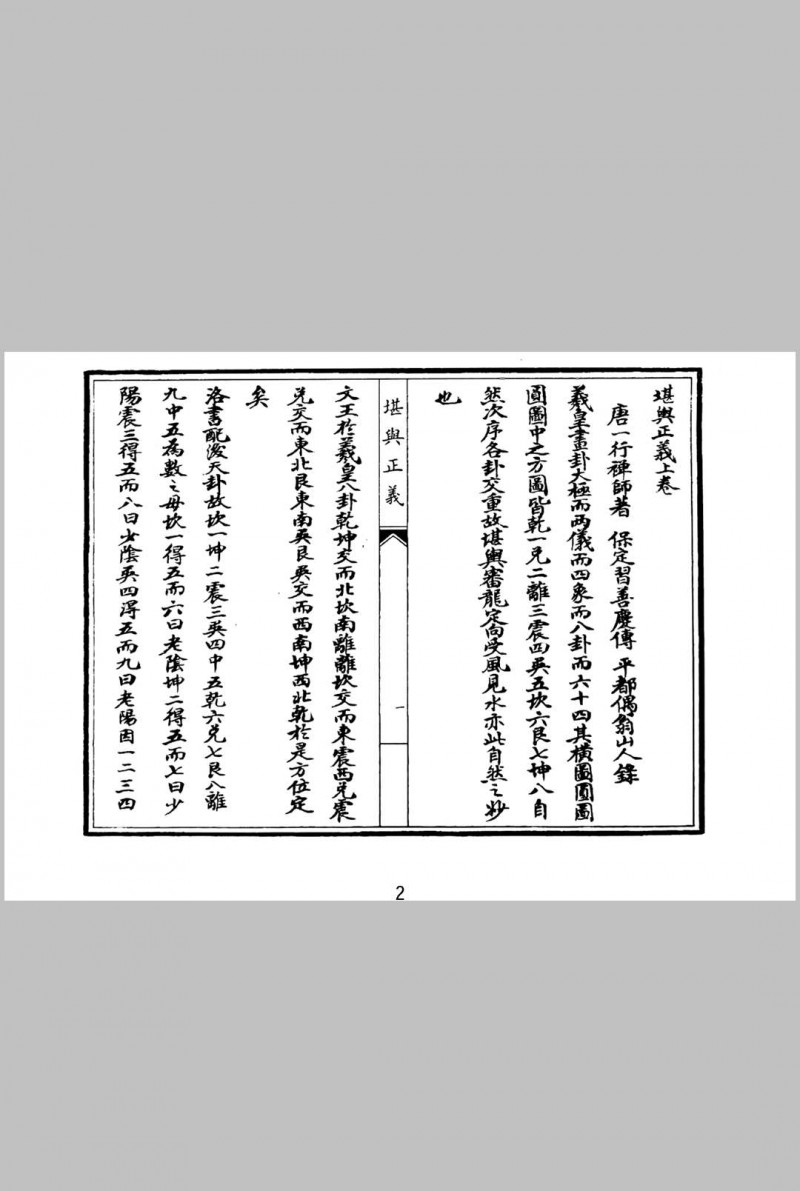 堪輿正義上卷
唐一行禪師著　保定習善塵傳　平都偶翁山人錄
羲皇畫卦大極而兩儀而四象而八卦而六十四其橫圖圓圖
圓圖中之方圖皆乾一兌二離三震四巽五坎六艮七坤八自
然次序各卦交重故堪輿審龍定向受風見水亦此自然之妙
也
堪輿正義
一
文王於羲皇八卦乾坤交而北坎南離離坎交而東震西兌震
兌交而東北艮東南巽艮巽交而西南坤西北乾於是方位定
矣
洛書配後天卦故坎一坤二震三巽四中五乾六兌七艮八離
九中五為數之母坎一得五而六曰老陰坤二得五而七曰少
陽震三得五而八曰少陰巽四得五而九曰老陽因一二三四
2